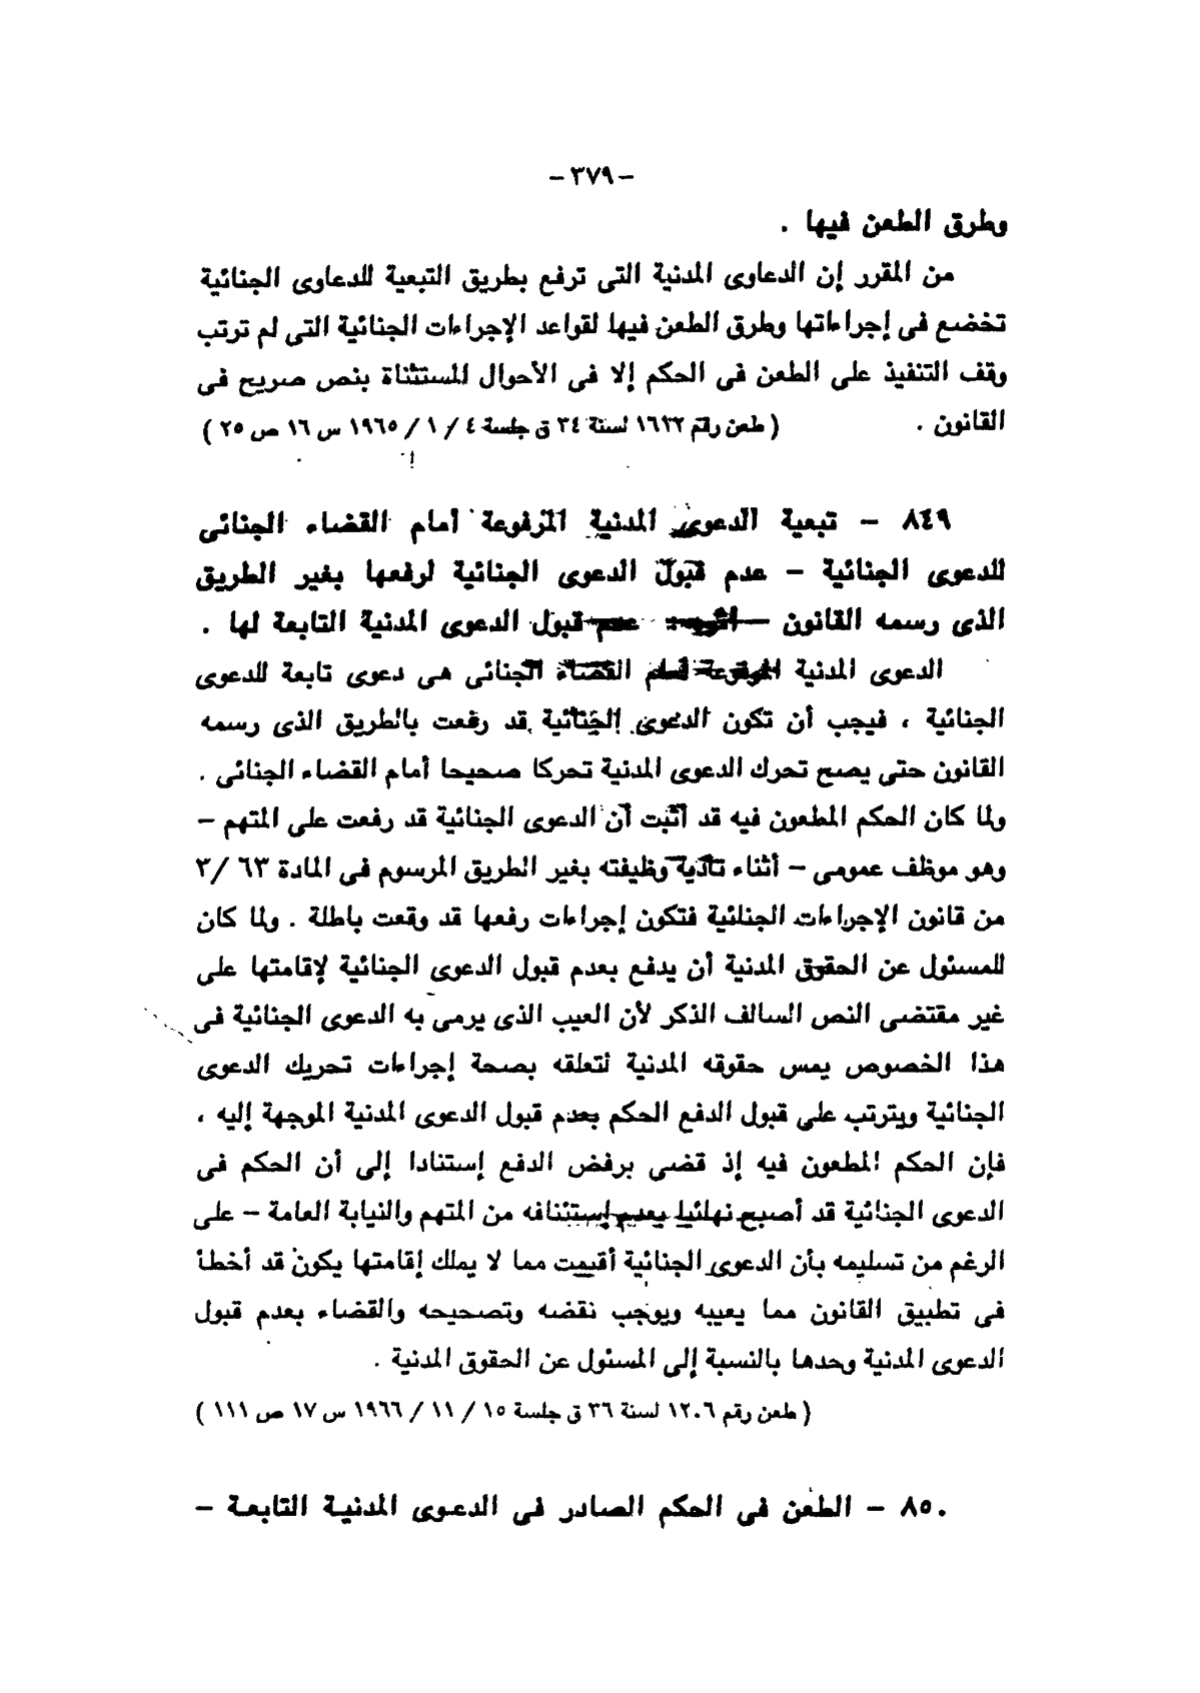 -٣٧٩-
وطرق الطعن فيها .
من المقرر إن الدعاوى المدنية التى ترفع بطريق التبعية للدعاوى الجنائية
تخضع فى إجراءاتها وطرق الطعن فيها لقواعد الإجراءات الجنائية التى لم ترتب
وقف التنفيذ على الطعن فى الحكم إلا فى الأحوال المستثناة بنص صريح فى
القانون . ( طعن رقم ١٦٣٢ لسنة ٣٤ ق جلسة ٤ / ١ / ١٩٦٥ س ١٦ ص ٢٥ )
٨٤٩ - تبعية الدعوى المدنية المرفوعة أمام القضاء الجنائى
للدعوى الجنائية - عدم قبول الدعوى الجنائية لرفعها بغير الطريق
الذى رسمه القانون - أثره : عدم قبول الدعوى المدنية التابعة لها .
الدعوى المدنية المرفوعة أمام القضاء الجنائى هى دعوى تابعة للدعوى
الجنائية ، فيجب أن تكون الدعوى الجنائية قد رفعت بالطريق الذى رسمه
القانون حتى يصح تحرك الدعوى المدنية تحركا صحيحا أمام القضاء الجنائى .
ولما كان الحكم المطعون فيه قد أثبت أن الدعوى الجنائية قد رفعت على المتهم -
وهو موظف عمومى - أثناء تأدية وظيفته بغير الطريق المرسوم فى المادة ٦٣ /٣
من قانون الإجراءات الجنائية فتكون إجراءات رفعها قد وقعت باطلة . ولما كان
للمسئول عن الحقوق المدنية أن يدفع بعدم قبول الدعوى الجنائية لإقامتها على
غير مقتضى النص السالف الذكر لأن العيب الذى يرمى به الدعوى الجنائية فى
هذا الخصوص يمس حقوقه المدنية لتعلقه بصحة إجراءات تحريك الدعوى
الجنائية ويترتب على قبول الدفع الحكم بعدم قبول الدعوى المدنية الموجهة إليه ،
فإن الحكم المطعون فيه إذ قضى برفض الدفع إستنادا إلى أن الحكم فى
الدعوى الجنائية قد أصبح نهائيا بعدم إستئنافه من المتهم والنيابة العامة - على
الرغم من تسليمه بأن الدعوى الجنائية أقيمت مما لا يملك إقامتها يكون قد أخطأ
فى تطبيق القانون مما يعيبه ويوجب نقضه وتصحيحه والقضاء بعدم قبول
الدعوى المدنية وحدها بالنسبة إلى المسئول عن الحقوق المدنية .
( طعن رقم ١٢٠٦ لسنة ٣٦ ق جلسة ١٥ / ١١ / ١٩٦٦ س ١٧ ص ١١١ )
٨٥٠ - الطعن فى الحكم الصادر فى الدعوى المدنية التابعة -